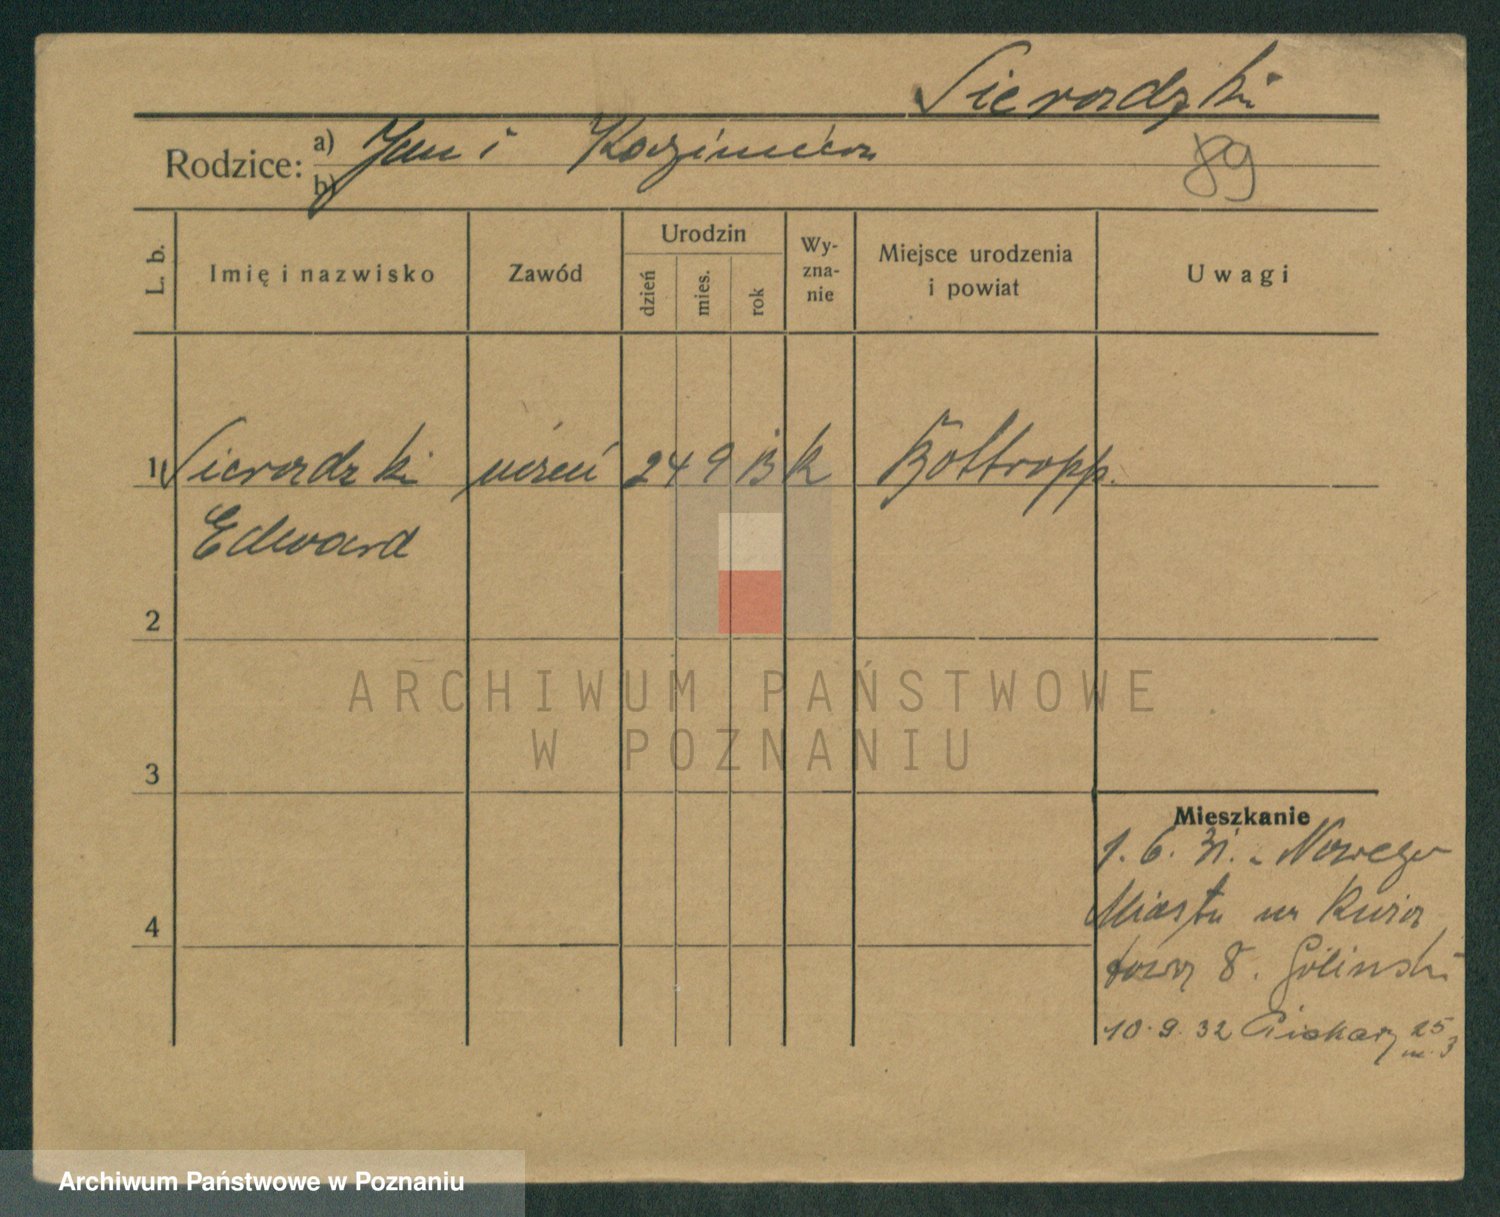 Sieradzki
Rodzice: a) Jan i Kazimiera
b)
89
L. b.
Imię i nazwisko
Zawód
Urodzin
dzień
mies.
rok
Wy-
zna-
nie
Miejsce urodzenia
i powiat
Uwagi
1 Sieradzki uczeń 24 9 13 K Bottropp.
Edward
2
3
4
Mieszkanie
1. 6. 31. z Nowego
Miasta
8.
10.9.32 Piekary 25
m. 3
ARCHIWUM PAŃSTWOWE
W POZNANIU
Archiwum Państwowe w Poznaniu